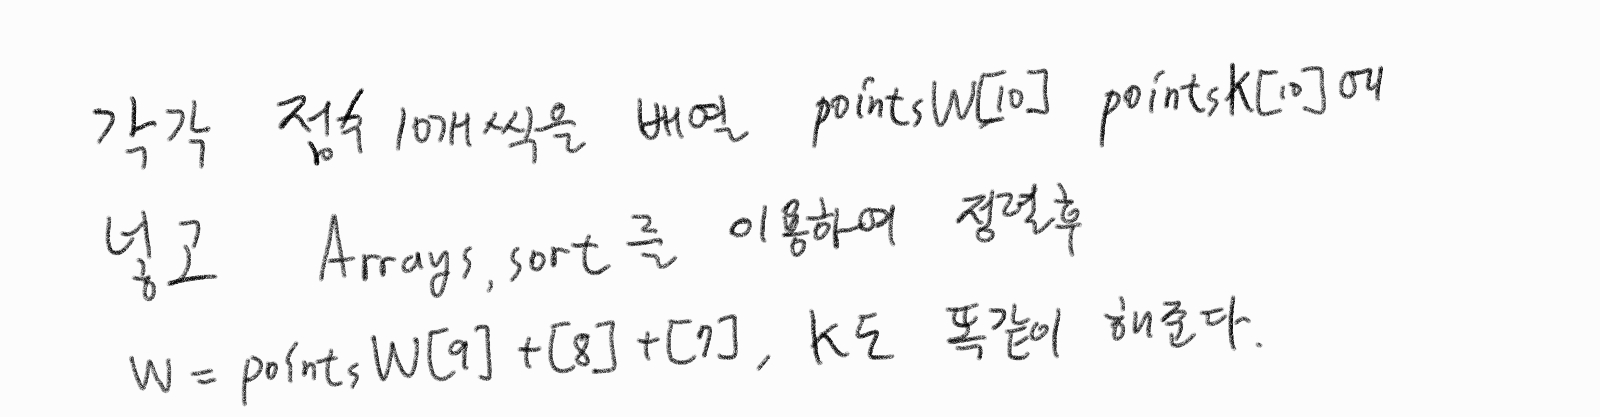 각각 점수 10개씩을 배열 pointsW[10] pointsK[10]에
넣고 Arrays.sort를 이용하여 정렬후
W = pointsW[9] + [8] + [7], K도 똑같이 해준다.